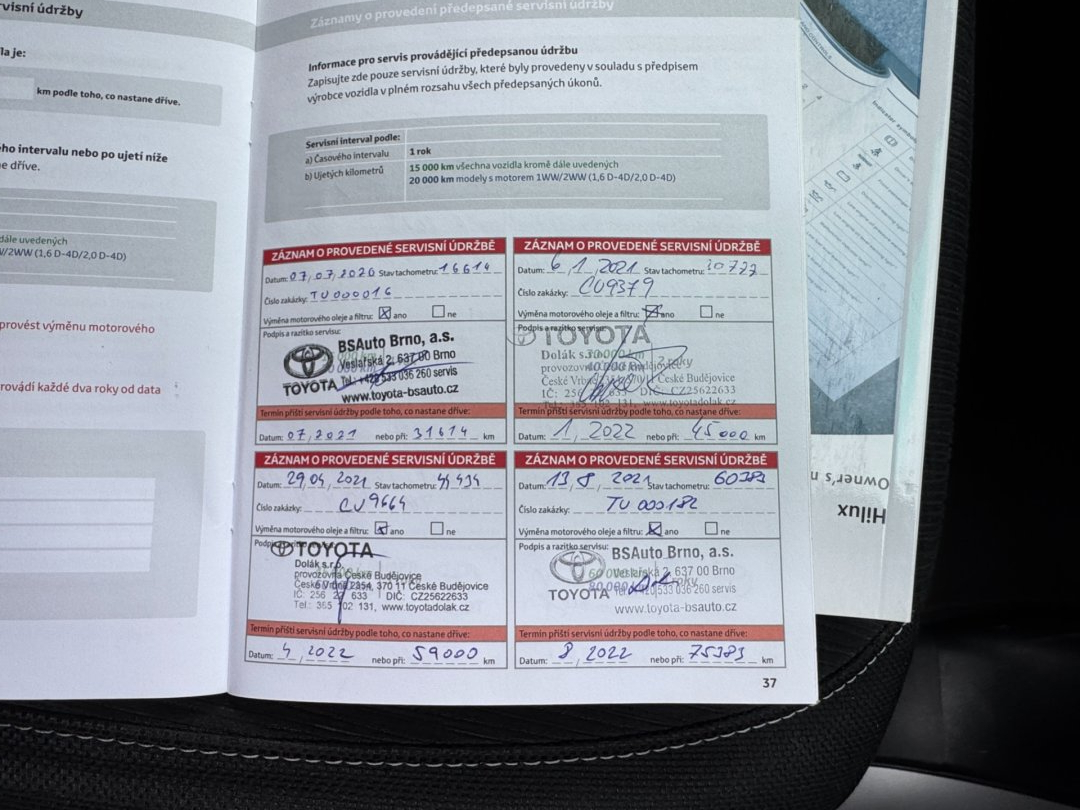 rvisní údržby
la je:
km podle toho, co nastane dříve.
ého intervalu nebo po ujetí níže
e dříve.
dále uvedených
W/2WW (1,6 D-4D/2,0 D-4D)
provést výměnu motorového
rovádí každé dva roky od data
Záznamy o provedení předepsané servisní údržby
Informace pro servis provádějící předepsanou údržbu
Zapisujte zde pouze servisní údržby, které byly provedeny v souladu s předpisem
výrobce vozidla v plném rozsahu všech předepsaných úkonů.
Servisní interval podle:
a) Časového intervalu 1 rok
b) Ujetých kilometrů 15 000 km všechna vozidla kromě dále uvedených
20 000 km modely s motorem 1WW/2WW (1,6 D-4D/2,0 D-4D)
ZÁZNAM O PROVEDENÉ SERVISNÍ ÚDRŽBĚ
Datum: 07, 07, 2020 Stav tachometru: 16614
Číslo zakázky: TU000016
Výměna motorového oleje a filtru: ano ne
Podpis a razítko servisu:
BSAuto Brno, a.s.
Veslařská 2, 637 00 Brno
TOYOTA Tel.: +420 533 036 260 servis
www.toyota-bsauto.cz
Termín příští servisní údržby podle toho, co nastane dříve:
Datum: 07, 2021 nebo při: 31614 km
ZÁZNAM O PROVEDENÉ SERVISNÍ ÚDRŽBĚ
Datum: 6, 1, 2021 Stav tachometru:
Číslo zakázky: CU9379
Výměna motorového oleje a filtru: ano ne
Podpis a razítko servisu:
TOYOTA
Dolák s.r.o.
provozovna České Budějovice
České Vrbné 370 11 České Budějovice
IČ: 256 27 633 DIČ: CZ25622633
Termín příští servisní údržby podle toho, co nastane dříve:
Datum: 1, 2022 nebo při: 45000 km
ZÁZNAM O PROVEDENÉ SERVISNÍ ÚDRŽBĚ
Datum: 29, 04, 2021 Stav tachometru:
Číslo zakázky: CU9664
Výměna motorového oleje a filtru: ano ne
TOYOTA
Dolák s.r.o.
provozovna České Budějovice
České Vrbné 2354, 370 11 České Budějovice
IČ: 256 27 633 DIČ: CZ25622633
Tel.: 385 102 131, www.toyotadolak.cz
Termín příští servisní údržby podle toho, co nastane dříve:
Datum: 4, 2022 nebo při: 59000 km
ZÁZNAM O PROVEDENÉ SERVISNÍ ÚDRŽBĚ
Datum: 13, 8, 2021 Stav tachometru: 60383
Číslo zakázky: TU 000182
Výměna motorového oleje a filtru: ano ne
Podpis a razítko servisu:
BSAuto Brno, a.s.
Veslařská 2, 637 00 Brno
TOYOTA Tel.: +420 533 036 260 servis
www.toyota-bsauto.cz
Termín příští servisní údržby podle toho, co nastane dříve:
Datum: 8, 2022 nebo při: 75383 km
37
Hilux
Owner's